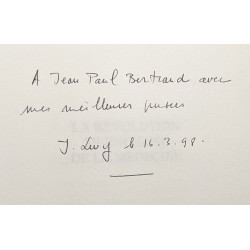 A Jean Paul Bertrand avec
mes meilleures pensées
J. Levy le 16.3.98.